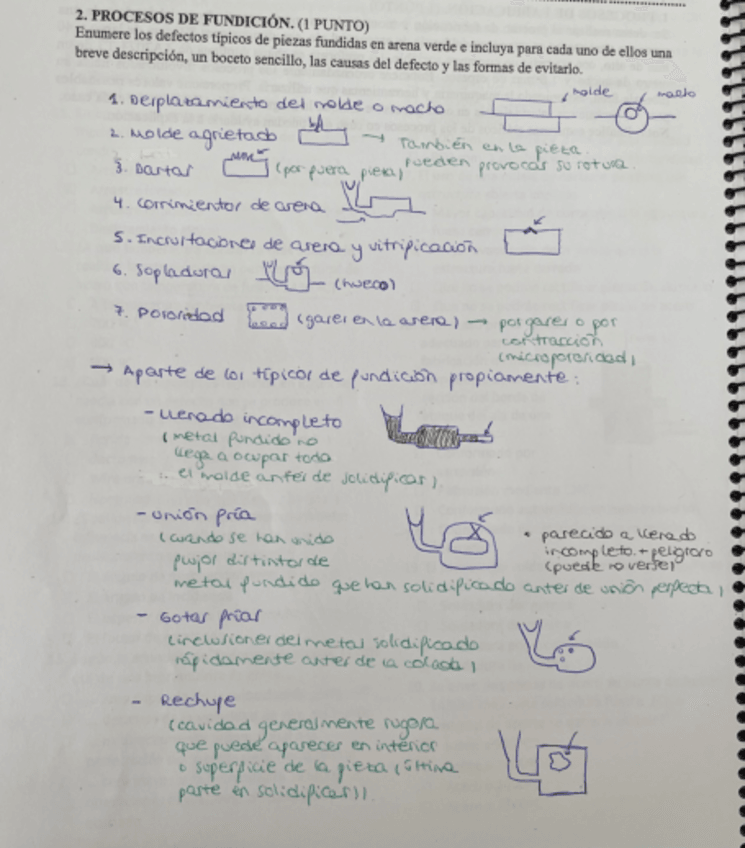 2. PROCESOS DE FUNDICIÓN. (1 PUNTO)
Enumere los defectos típicos de piezas fundidas en arena verde e incluya para cada uno de ellos una
breve descripción, un boceto sencillo, las causas del defecto y las formas de evitarlo.
1. Desplazamiento del molde o macho
molde
macho
2. Molde agrietado → También en la pieza.
pueden provocar su rotura.
3. Dartas (por fuera pieza)
4. Corrimientos de arena
5. Incrustaciones de arena y vitrificación
6. Sopladuras (hueco)
7. Porosidad (gases en la arena) → por gases o por
contracción
(microporosidad)
→ Aparte de los típicos de fundición propiamente:
- Llenado incompleto
(metal fundido no
llega a ocupar todo
el molde antes de solidificar)
- Unión fría
(cuando se han unido
flujos distintos de
metal fundido que han solidificado antes de unión perfecta)
• parecido a llenado
incompleto. + peligroso
(puede no verse)
- Gotas frías
(inclusiones del metal solidificado
rápidamente antes de la colada)
- Rechupe
(cavidad generalmente rugosa
que puede aparecer en interior
o superficie de la pieza (última
parte en solidificar))